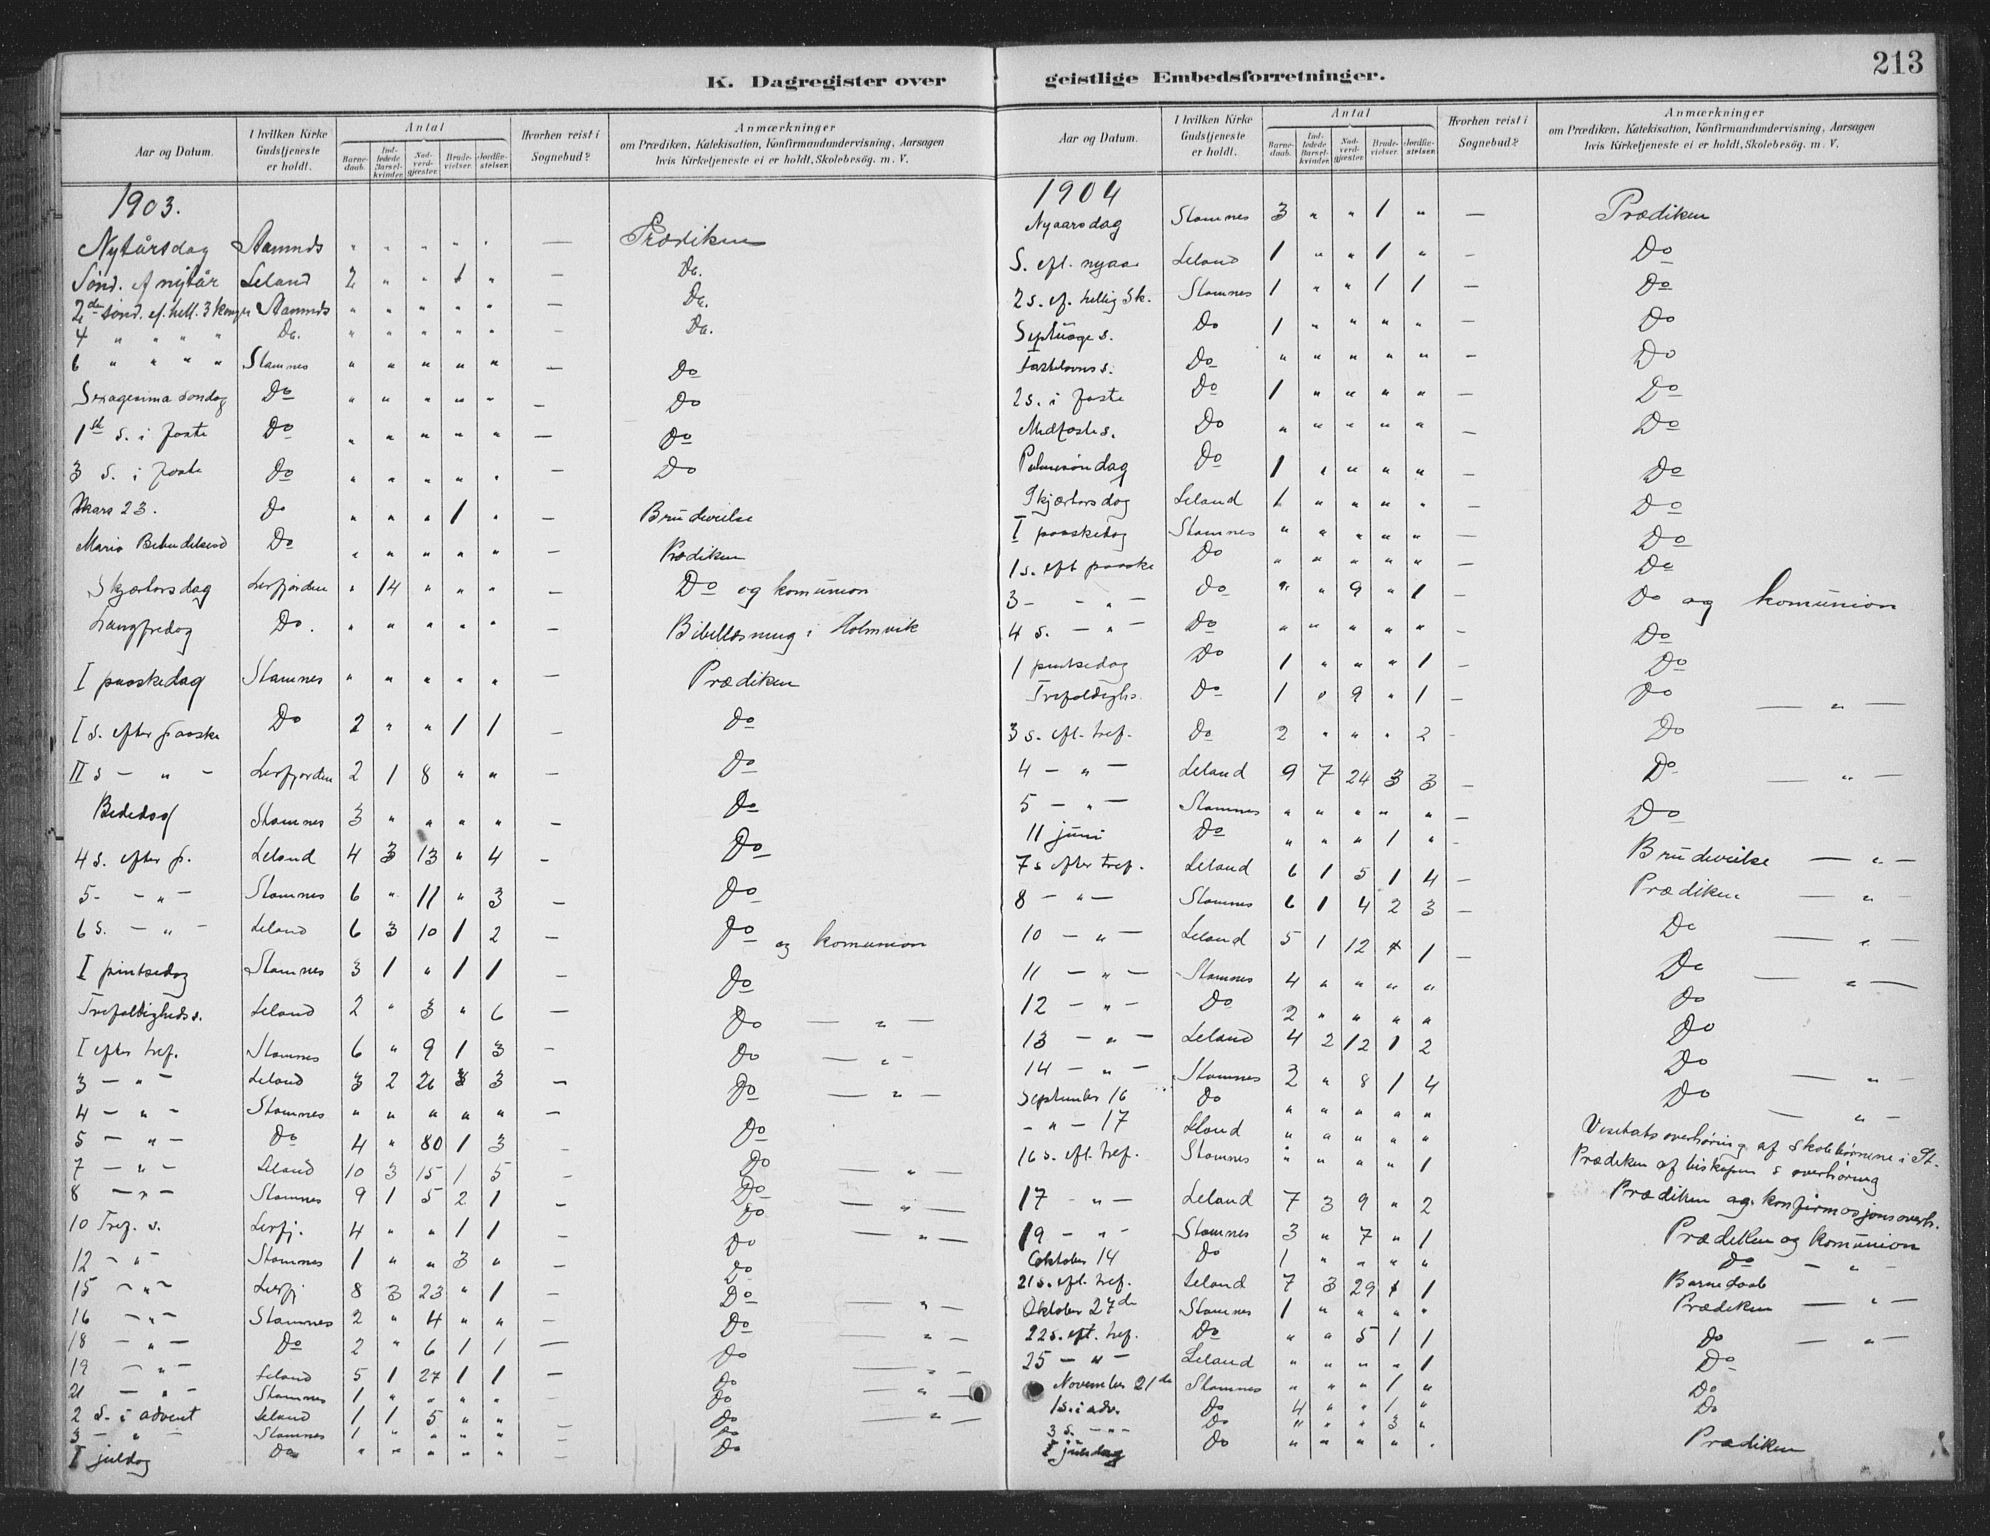 K. Dagregister over
Aar og Datum. | I hvilken Kirke Gudstjeneste er holdt. | Antal | Barnedaab. | Indledede Barselkvinder. | Nadverdgjester. | Brudevielser. | Jordfæstelser. | Hvorhen reist i Sognebud? | Anmærkninger om Prædiken, Katekisation, Konfirmandundervisning, Aarsagen hvis Kirketjeneste ei er holdt, Skolebesøg. m. V.
1903.
Nytårsdag Stamnes " " " " " — Prædiken
Sønd. ef nytår Leland 2 " " 1 " — Do.
2den sønd. ef. hell. 3 konger Stamnes " " " " " — Do.
4 " " " " Do. " " " " " — Do.
6 " " " " Stamnes " " " " " — Do
Sexagesima søndag Do " " " " " — Do
1st s. i faste Do " " " " " — Do
3 s. i faste Do " " " " " — Do
Mars 23. Do " " " 1 " — Brudevielse
Mariæ Bebudelsesd Do " " " " " — Prædiken
Skjærtorsdag Leirfjorden " 14 " " " — Do og komunion
Langfredag Do. " " " " " — Bibellæsning i Holmvik
I paaskedag Stamnes " " " " " — Prædiken
I s. efter paaske Do 2 " " 1 1 — Do
II s — " — Leirfjorden 2 1 8 " " — Do
Bededag Stamnes 3 " " " " — Do
4 s. efter p. Leland 4 3 13 " 4 — Do
5 — " — Stamnes 6 " 11 " 3 — Do
6 s. — " — Leland 6 3 10 1 2 — Do og komunion
I pintsedag Stamnes 3 1 " 1 1 — Do
Trefoldigheds s. Leland 2 " 3 " 6 Do — " —
I efter tref. Stamnes 6 " 9 1 3 — Do — " —
3 — " — Leland 3 2 26 3 3 — Do — " —
4 — " — Stamnes " " " " " — Do
5 — " — Do 4 " 80 1 3 — Do — " —
7 — " — Leland 10 3 15 1 5 — Do — " —
8 — " — Stamnes 9 1 5 2 1 — Do — " —
10 Tref. s. Leirfj. 4 " " 1 1 — Do
12 — " — Stamnes 1 " " 3 " — Do
15 — " — Leirfj 8 3 23 " 1 — Do — " —
16 — " — Stamnes 2 " 4 " " — Do — " —
18 — " — Do 2 " 6 1 1 — Do — " —
19 — " — Leland 5 1 27 1 1 — Do — " —
21 — " — Stamnes 1 " " " " — Do
2 s. i advent Leland 1 1 5 " " — Do — " —
3 — " — Stamnes 1 " " " " — Do
I juldag Do " " " " " — Do
213
geistlige Embedsforretninger.
Aar og Datum. | I hvilken Kirke Gudstjeneste er holdt. | Antal | Barnedaab. | Indledede Barselkvinder. | Nadverdgjester. | Brudevielser. | Jordfæstelser. | Hvorhen reist i Sognebud? | Anmærkninger om Prædiken, Katekisation, Konfirmandundervisning, Aarsagen hvis Kirketjeneste ei er holdt, Skolebesøg. m. V.
1904
Nyaarsdag Stamnes 3 " " 1 " — Prædiken
S. eft. nyaar Leland 1 " " 1 " — Do
2 s. ef. hellig 3k. Stamnes 1 " " 1 1 — Do
Septuage s. Do 1 " " " " — Do
Fastelavns s. Do " " " " " — Do
2 s. i faste Do 1 " " " " — Do
Midfaste s. Do " " " " " — Do
Palmesøndag Do 1 " " " " — Do
Skjærtorsdag Leland 1 " " " " — Do
I paaskedag Stamnes " " " " " — Do
1 s. eft paaske Do " " " " " — Do
3 — " — Do " " 9 " 1 — Do og komunion
4 s. — " — Do " " " " " — Do
1 pintsedag Do 1 " " " 1 — Do
Trefoldighs. Do 1 " 9 " 1 — Do — " —
3 s. eft. tref. Do 2 " " " 2 — Do
4 — " — Leland 9 7 24 3 3 — Do — " —
5 — " — Stamnes " " " " " — Do
11 juni Do " " " 1 " — Brudevielse
7 s efter tref. Leland 6 1 5 1 4 — Prædiken — " —
8 — " — Stamnes 6 1 4 2 3 — Do — " —
10 — " — Leland 5 1 12 1 1 — Do — " —
11 — " — Stamnes 4 " " " " Do
12 — " — Do 2 " " " " Do
13 — " — Leland 4 2 12 1 2 Do — " —
14 — " — Stamnes 2 " 8 1 4 Do — " —
September 16 Do " " " " " Visitatsoverhøring af skolebørnene i St.
— " — 17 Leland " " " " " Prædiken af biskopen & overhøring
16 s. eft. tref. Stamnes " " " " 1 Prædiken og konfirmasjonsoverh.
17 — " — Leland 7 3 9 " 2 Prædiken og komunion
19 — " — Stamnes 3 " 7 " 1 Do — " —
Oktober 14 Do 1 " " " " Barnedaab
21 s. eft. tref. Leland 7 3 29 1 1 Prædiken — " —
Oktober 27de Stamnes 1 " " " "
22 s. eft. tref. Do " " 5 1 1 Do — " —
25 — " — Leland " " " " 1 Do
November 21de Stamnes " " " 1 " Do
1 s. i adv. Do 4 " " 1 " Do
3 s. — " — Do " " " 3 "
I juledag Do " " " " " Prædiken